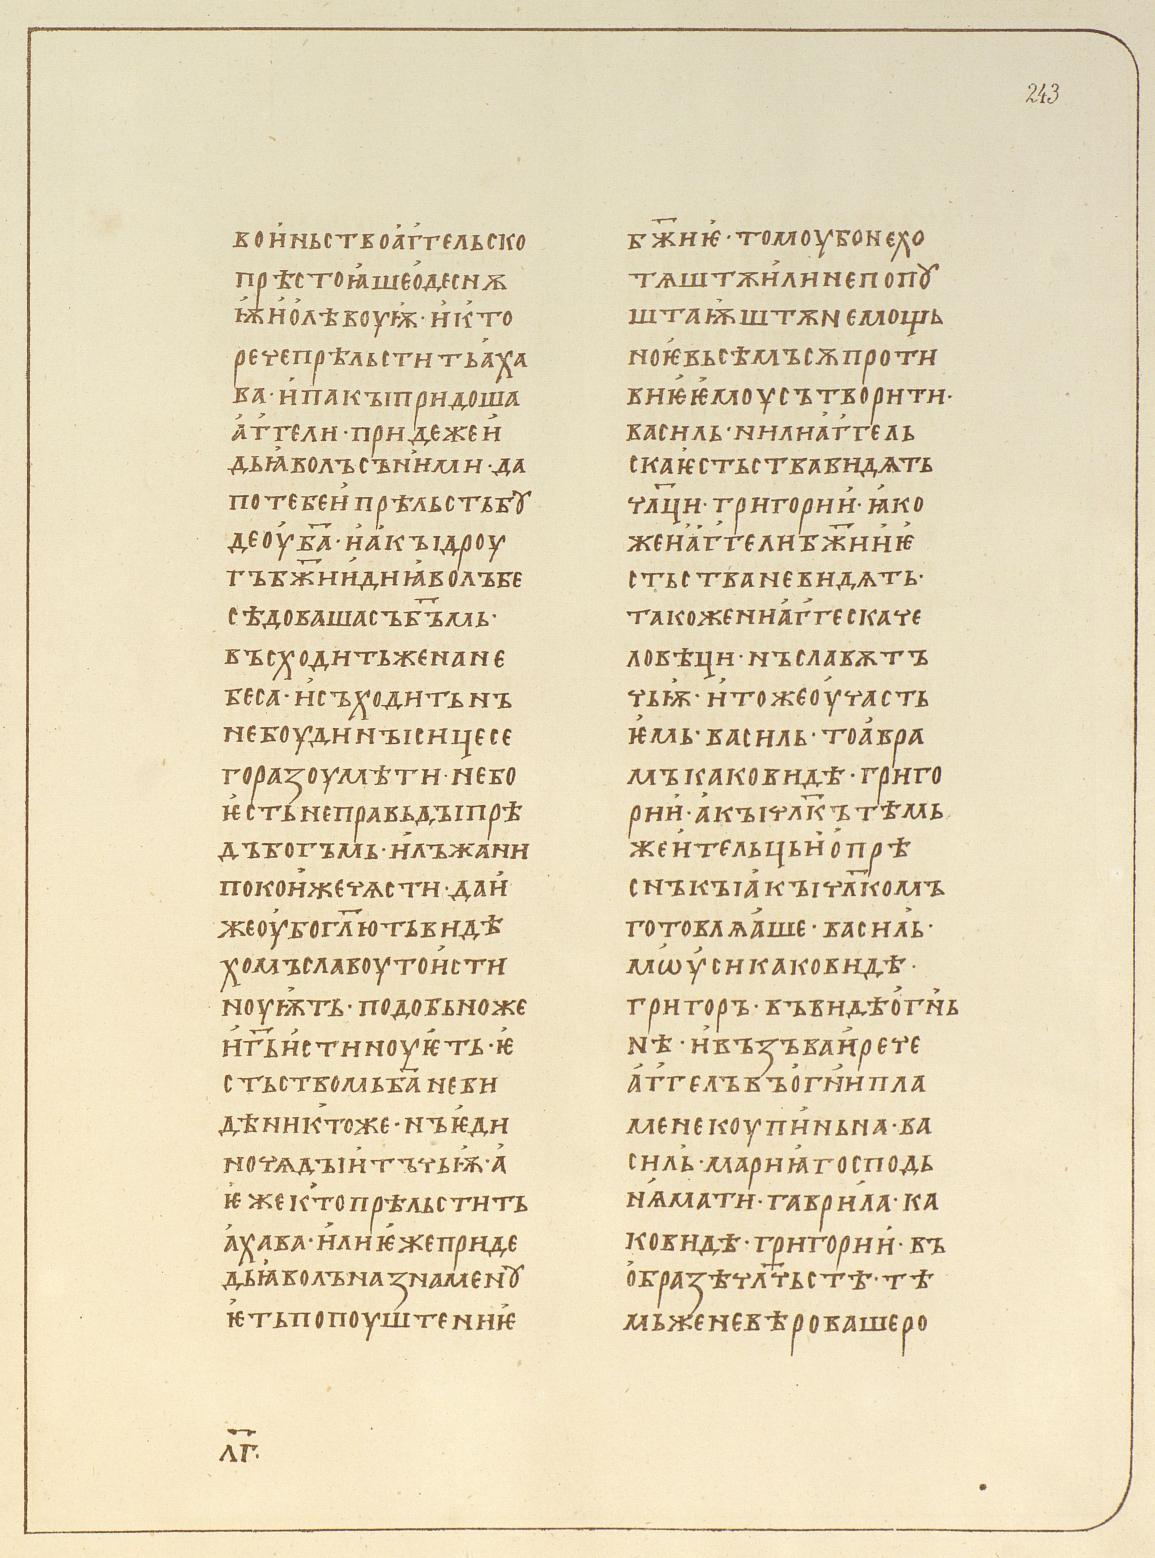 243
воиньствоаг҄гельско
прѣстоꙗшеодеснѫ
ѭ҅и҅о҅лѣвоуѭ҅·и҅кто
речепрѣльститьа҅ха
ва·и҅пакꙑпридоша
а҅г҄гели·придежеи҅
дьꙗ҅волъсън҄ими·да
потебеи҅прѣльстьбꙋ
деоу҅б҃а·и҅а҅кꙑдроу
гъбж҃ии҅диꙗ҅волъбе
сѣдовашасъб҃ъмь·
въсходитьженане
беса·и҅съходитьнъ
небоудинꙑсицесе
горазоумѣти·небо
ѥ҅стьнеправьдꙑпрѣ
дъбогъмь·и҅лъжании
покои҅жечѧсти·даи҅
жеоу҅богл҃ютьвидѣ
хомъславоутои҅сти
ноуѭ҅ть·подобьноже
и҅г҃ьи҅стиноуѥ҅ть·ѥ҅
стьствомьб҃аневи
дѣниктоже·нъѥ҅ди
ночѧдꙑи҅тъчьѭ҅·а҅
ѥ҅жектопрѣльстить
а҅хава·и҅лиѥ҅жеприде
дьꙗ҅волъназнаменꙋ
ѥ҅тьпопоуштениѥ҅
лг҃·
бж҃иѥ҅·томоубонехо
тѧштѫи҅линепопꙋ
штаѭ҅штѫнемощь
ноѥ҅вьсѣмъсѫпроти
виѥ҅ѥ҅моусътворити·
василь·нилиа҅г҄гель
скаѥ҅стьствавидѧть
чл҃ци·григории҅·ꙗ҅ко
жеи҅а҅г҄гелибж҃ииѥ҅
стьстваневидѧть·
такожениа҅г҄гескаче
ловѣци·нъславѫтъ
чьѭ҅·и҅тожеоу҅часть
ѥ҅мь·василь·тоа҅вра
мъкаковидѣ·григо
рии҅·а҅кꙑчл҃кътѣмь
жеи҅тельцьи҅о҅прѣ
снъкꙑа҅кꙑчл҃комъ
готовлѧа҅ше·василь·
мѡѵ҅сикаковидѣ·
григоръ·въвидѣо҅гн҄ь
нѣ·и҅възъваи҅рече
а҅г҄гелъвъо҅гн҄ипла
менекоупи҅ньна·ва
силь·мариꙗ҅господь
нꙗ҅мати·гаврила·ка
ковидѣ·григории҅·въ
о҅бразѣчл҃чьстѣ·тѣ
мьженевѣровашеро